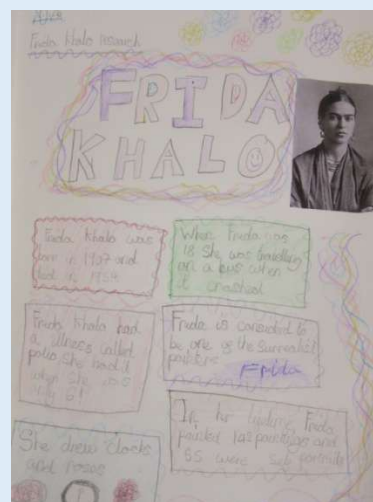 Frida Khalo research
FRIDA
KHALO
Frida Khalo was
born in 1907 and
died in 1954
When Frida was
18 She was travelling
on a bus when
it crashed
Frida Khalo had
a illness called
polio, She had it
when she was
only 6!
Frida is considerd to
be one of the surrealist
painters
Frida
In her lifetime, Frida
painted 143 paintings and
55 were self portraits
She drew clocks
and roses